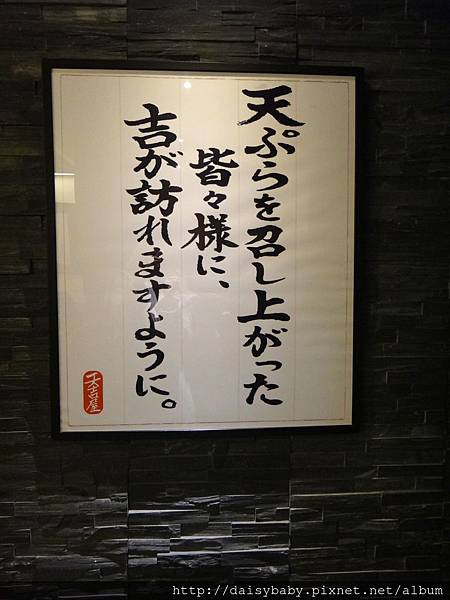 天ぷらを召し上がった
皆々様に、
吉が訪れますように。
天吉屋
http://daisybaby.pixnet.net/album